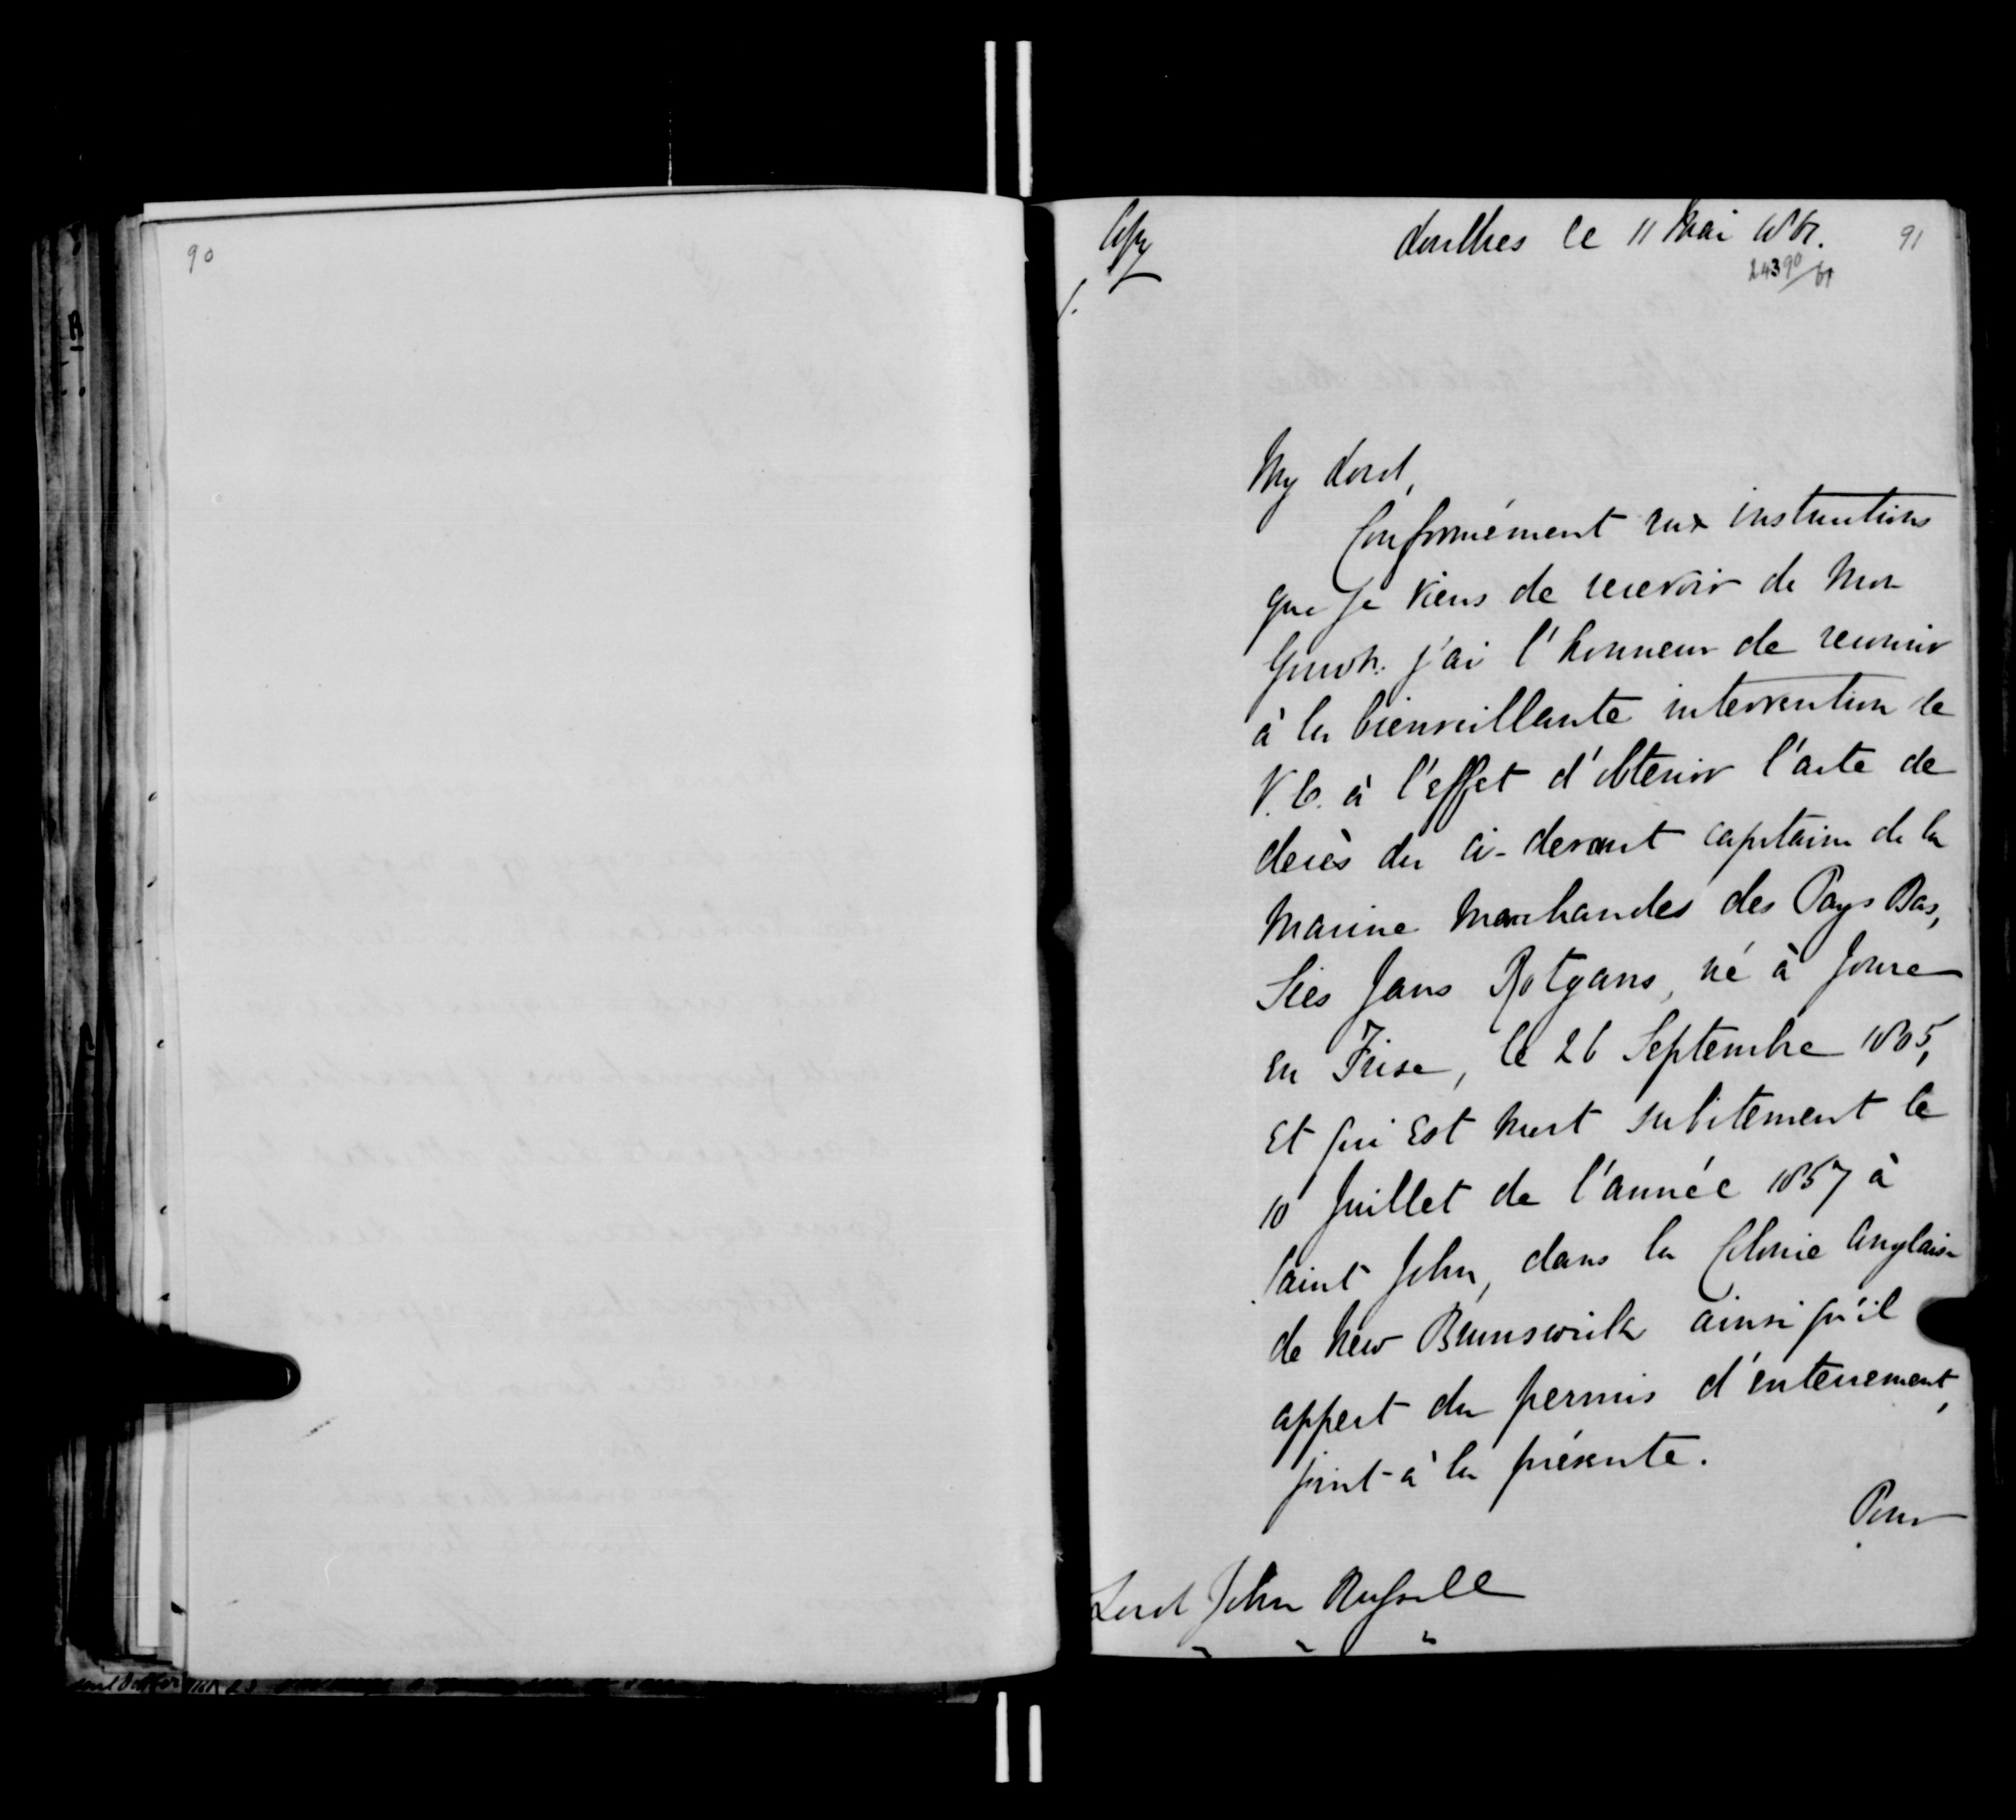 90
Copy
Londres le 11 Mai 1861.
91
24390/61
1.
My Lord,
Conformément aux instructions
que je viens de recevoir de mon
Gouvt. j'ai l'honneur de recourir
à la bienveillante intervention de
V.E. à l'effet d'obtenir l'acte de
decès du ci-devant capitaine de la
Marine Marchandes des Pays Bas,
Sies Jans Rotgans, né à Joure
en Frise, le 26 Septembre 1805,
et qui est mort subitement le
10 Juillet de l'année 1857 à
Saint John, dans la Colonie Anglaise
de New Brunswick ainsi qu'il
appert du permis d'enterrement,
joint à la présente.
Pour
Lord John Russell
" " "